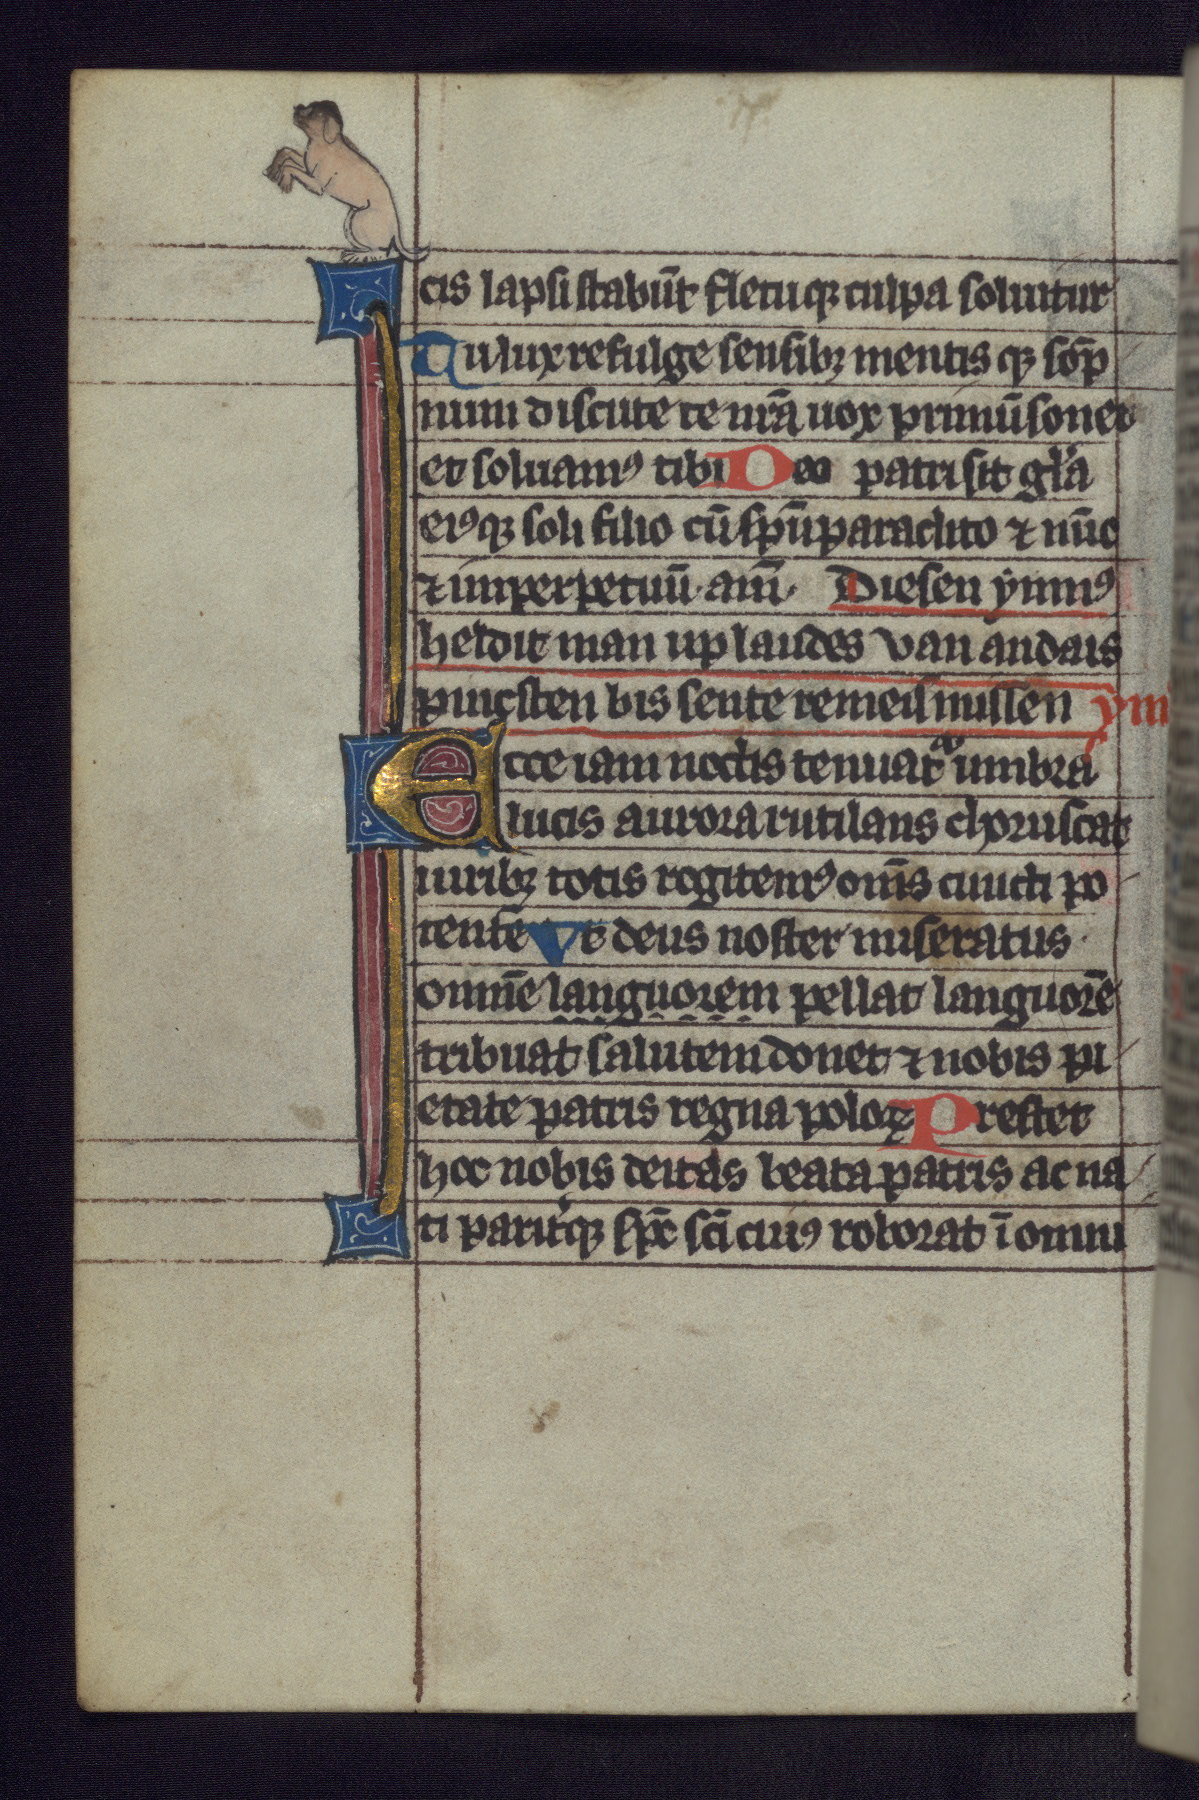 cis lapsi stabūt fletuqꝫ culpa soluitur
Tu lux refulge sensibꝫ mentis qꝫ sōp
num discute te nrā uox primū sonet
et soluamꝰ tibi Deo patri sit glꝛa
eiꝰqꝫ soli filio cū spū paraclito ⁊ nūc
⁊ imperpetuū · am̄ · Diesen ymnꝰ
heldit man up laudes van andais
pincsten bis sente remeis missen ym
Ecce iam noctis tenuatᷣ umbra
lucis aurora rutilans choruscat
uiribꝫ totis rogitemꝰ om̄s cuncti po
tentē Vt deus noster miseratus
omnē languorem pellat languorē
tribuat salutem donet ⁊ nobis pi
etate patris regna poloꝝ Prestet
hoc nobis deitas beata patris ac na
ti paritꝰqꝫ spc̄ sc̄i cuiꝰ roborat ī omni